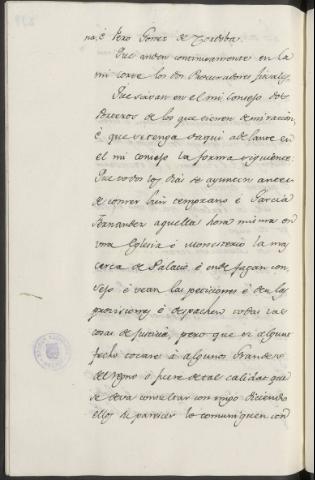 na, é Pero Gomez de Cordoba
Que anden continuamente en la
mi Corte los dos Procuradores fiscales,
Que sirvan en el mi Consejo dos
de los que tienen
é que se tenga de aqui adelante en
el mi consejo la forma siguiente
Que todos los dias se ayunten antes
de comer bien temprano é Garcia
Fernandez aquella hora misma en
una Eglesia ó Monesterio la mas
cerca de Palacio, é ende fagan con
sejo é vean las peticiones é den las
provisiones é despachen todas las
cosas de justicia, pero que si algun
fecho tocare á algunos Grandes
del Regno ó fuere de tal calidad que
se deva consultar con migo diciendo
ellos su parecer lo comuniquen con